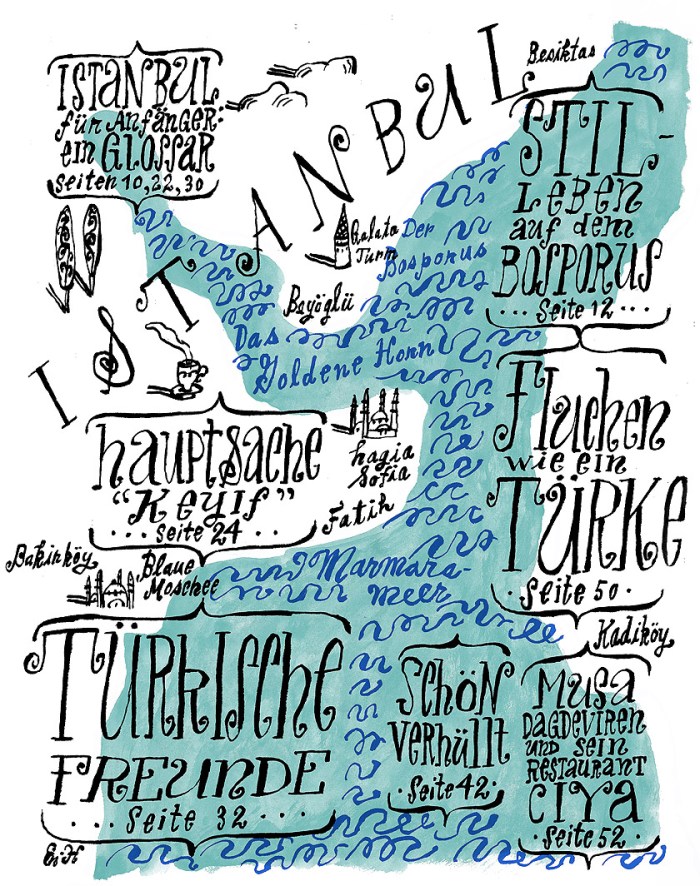 ISTANBUL
für Anfänger:
ein GLOSSAR
Seiten 10, 22, 30
ISTANBUL
Besiktas
STIL-
Leben
auf dem
BOSPORUS
Seite 12
Galata
Turm
Der
Bosporus
Beyöglü
Das
Goldene Horn
Fluchen
wie ein
TÜRKE
Seite 50
hauptsache
"Keyif"
Seite 24
hagia
Sofia
Fatih
Bakirköy
Blaue
Moschee
Marmara-
meer
Kadiköy
TÜRKISChe
FREUNDE
Seite 32
SchÖN
verhüllt
Seite 42
Musa
DAGDEVIREN
und sein
RESTAURANT
CIYA
Seite 52